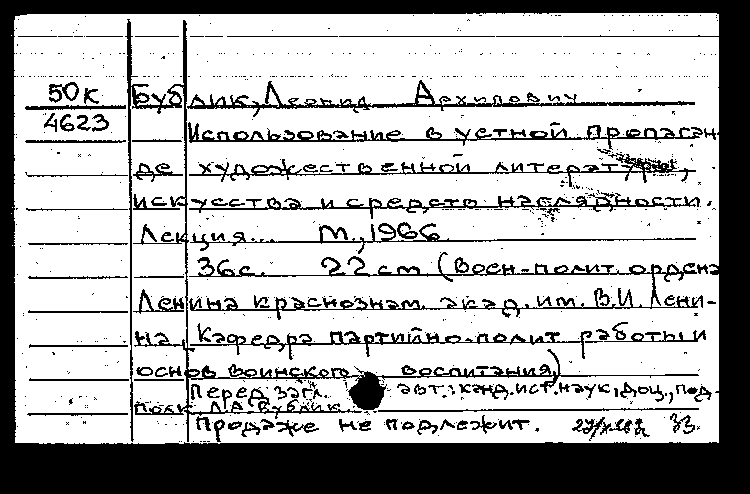 50к Бублик, Леонид Архипович
4623 Использование в устной пропаган-
де художественной литературы,
искусства и средств наглядности.
Лекция... М., 1966
36с. 22 см (Воен-полит. ордена
Ленина краснознам. акад. им. В.И. Лени-
на, Кафедра партийно-полит работы и
основ воинского воспитания)
Перед загл. авт.: канд. ист. наук, доц., под-
полк. Л.А. Бублик
Продаже не подлежит.